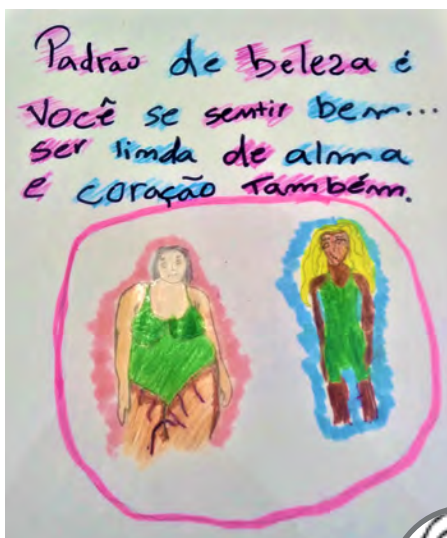 Padrão de beleza é
você se sentir bem...
ser linda de alma
e coração também.